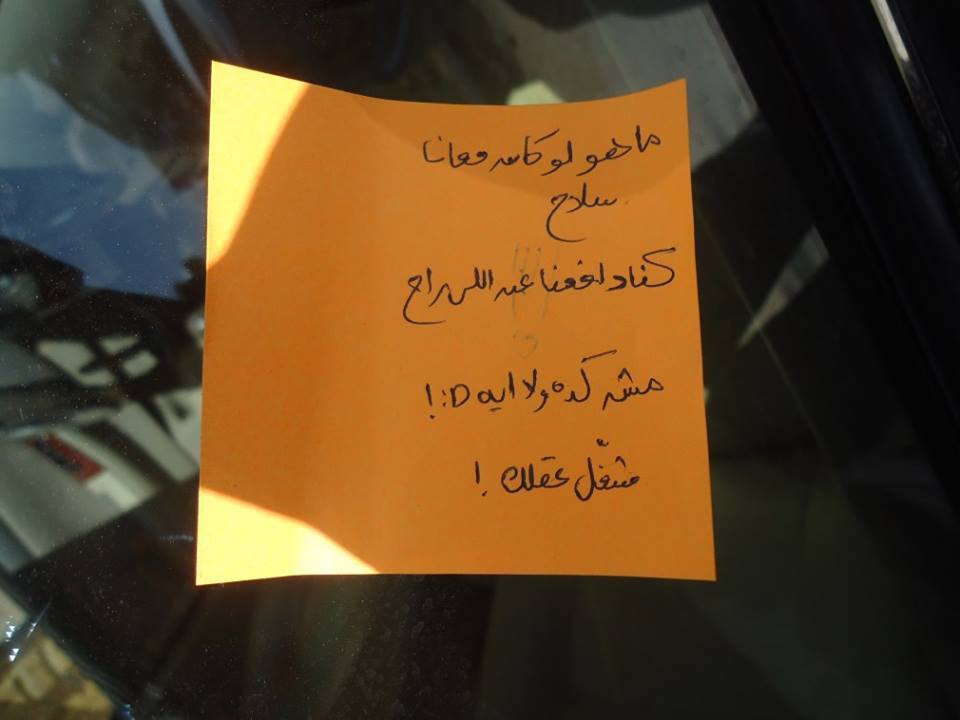 ما هو لو كان معانا
سلاح
كنا دافعنا عن اللي راح
مش كده ولا ايه D:!
شغّل عقلك !